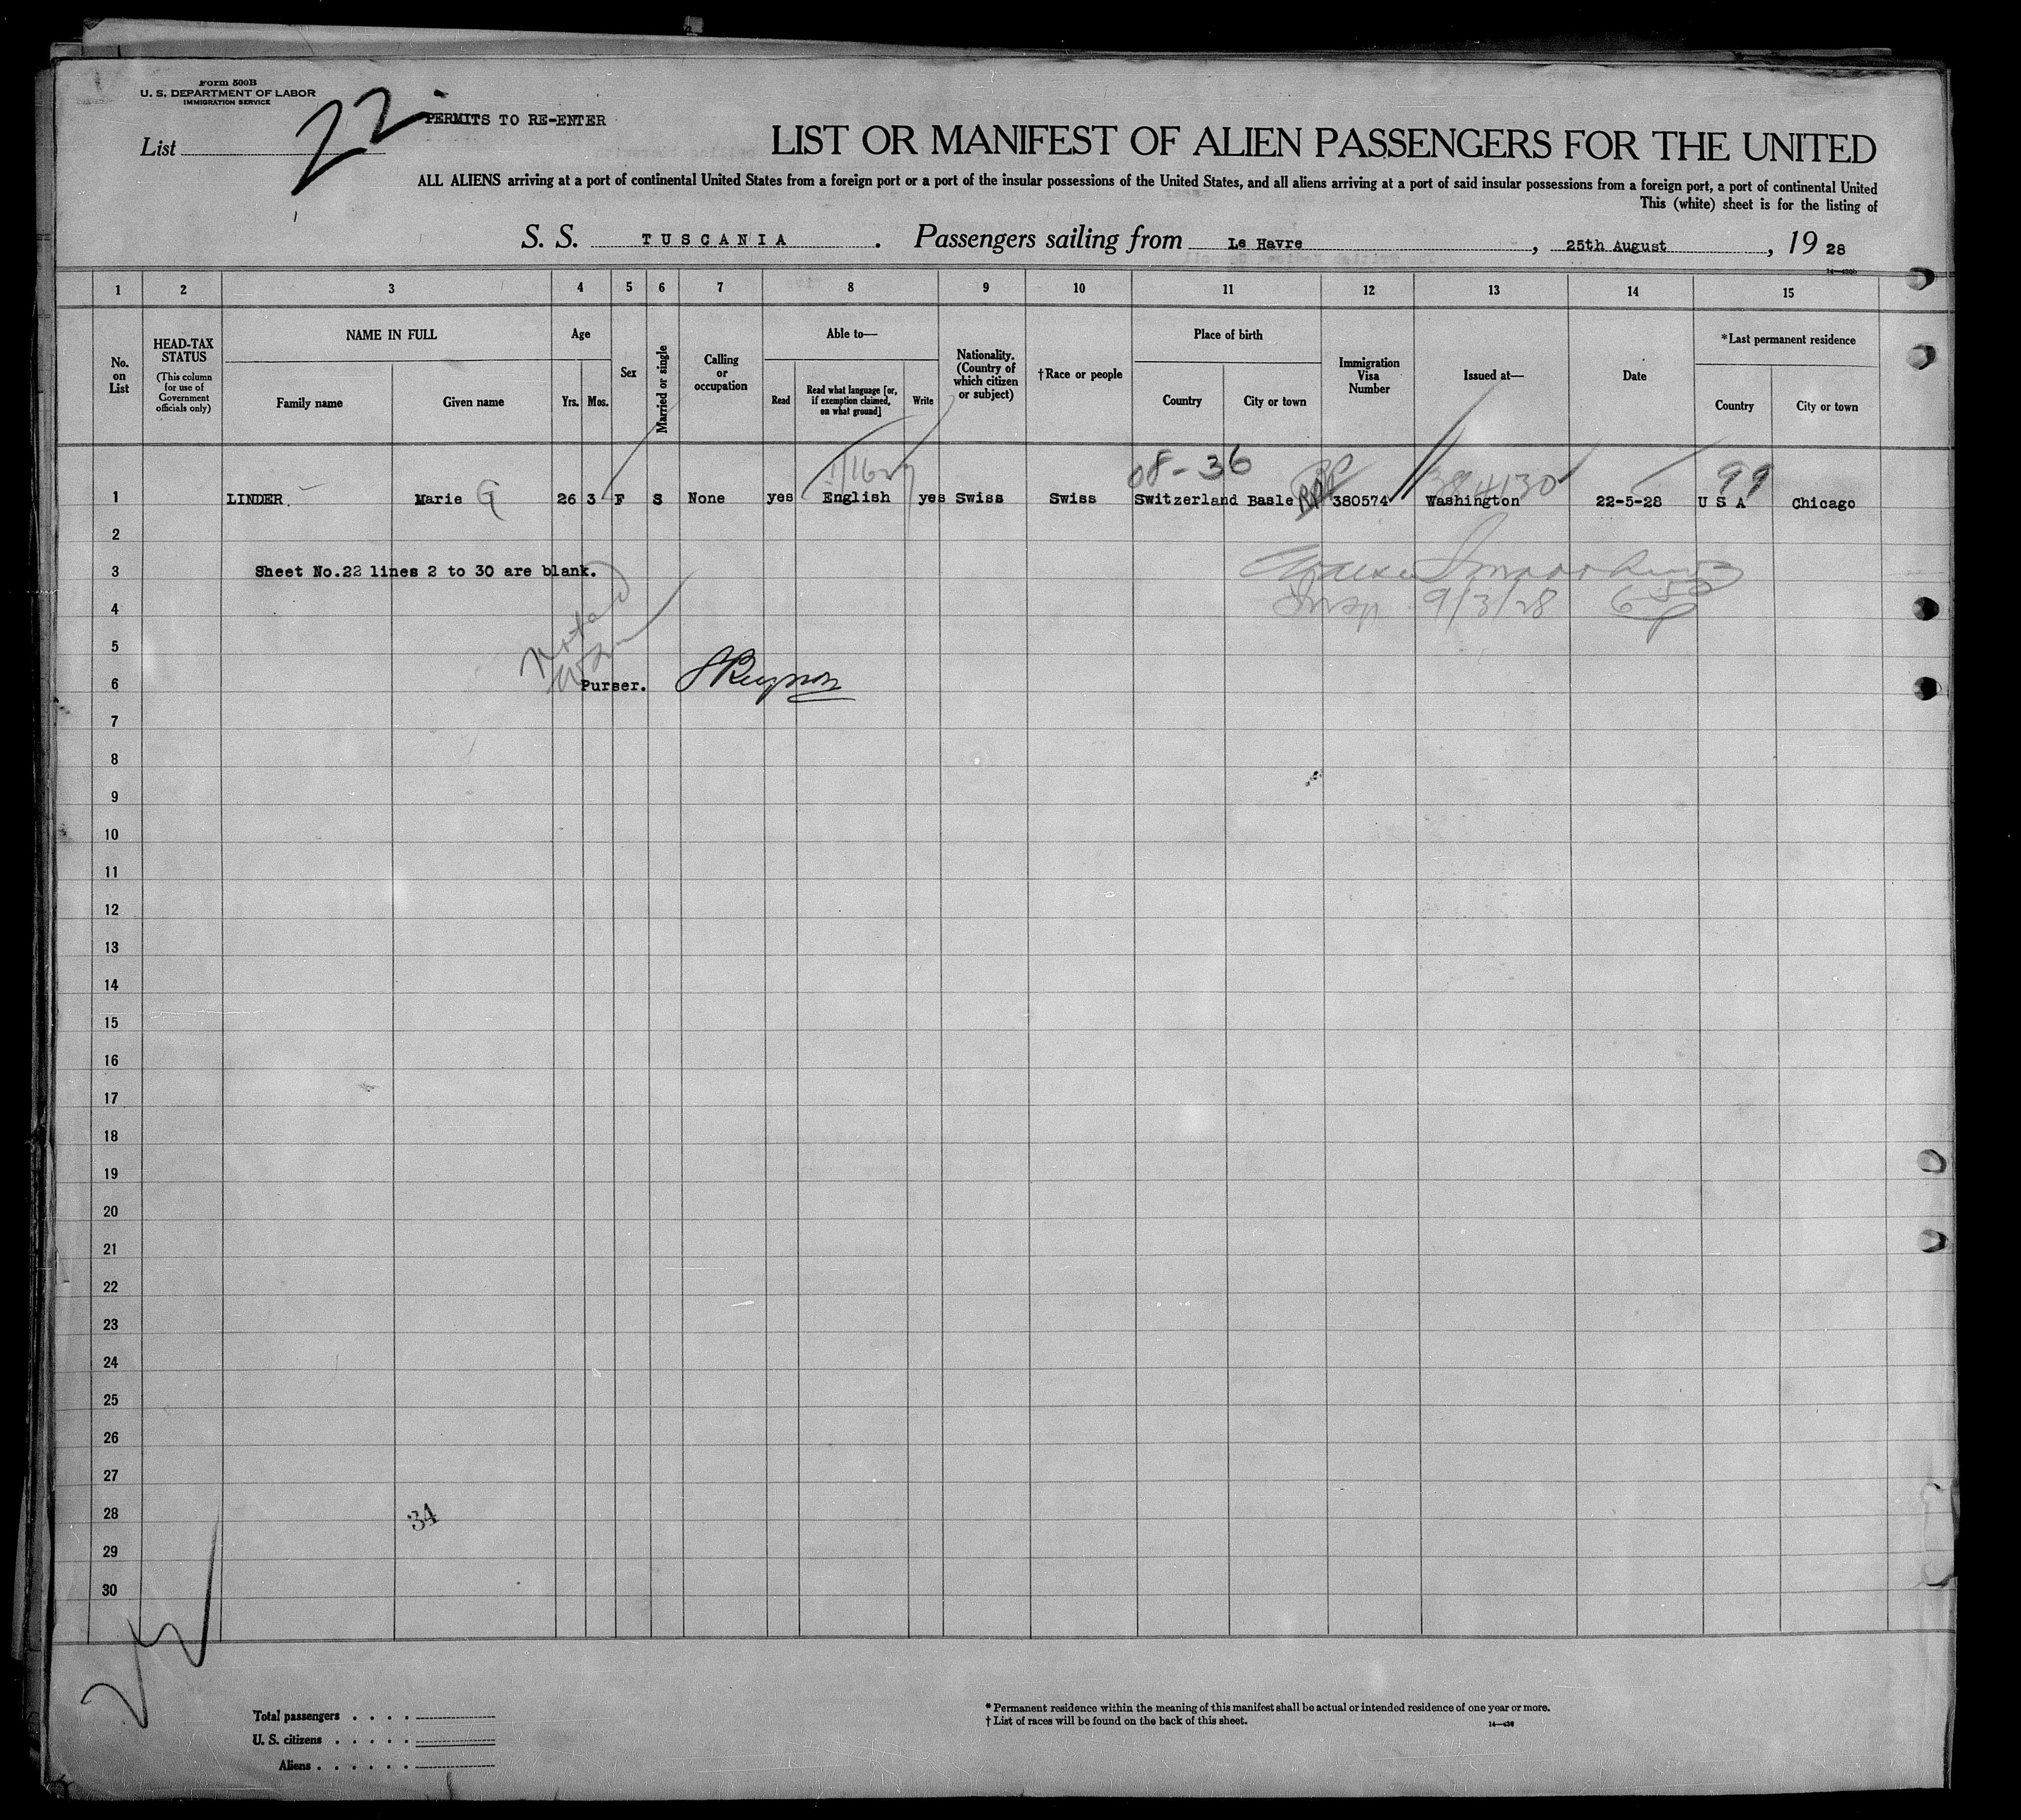 Form 500B
U. S. DEPARTMENT OF LABOR
IMMIGRATION SERVICE
List 22
PERMITS TO RE-ENTER
LIST OR MANIFEST OF ALIEN PASSENGERS FOR THE UNITED
ALL ALIENS arriving at a port of continental United States from a foreign port or a port of the insular possessions of the United States, and all aliens arriving at a port of said insular possessions from a foreign port, a port of continental United
This (white) sheet is for the listing of
S. S. TUSCANIA . Passengers sailing from Le Havre , 25th August , 19 28
1 2 3 4 5 6 7 8 9 10 11 12 13 14 15
No. on List
HEAD-TAX STATUS
(This column for use of Government officials only)
NAME IN FULL
Family name
Given name
Age
Yrs. Mos.
Sex
Married or single
Calling or occupation
Able to—
Read
Read what language [or, if exemption claimed, on what ground]
Write
Nationality. (Country of which citizen or subject)
†Race or people
Place of birth
Country
City or town
Immigration Visa Number
Issued at—
Date
*Last permanent residence
Country
City or town
08-36 99
384130
1 LINDER Marie G 26 3 F S None yes English yes Swiss Swiss Switzerland Basle 380574 Washington 22-5-28 U S A Chicago
2
3 Sheet No.22 lines 2 to 30 are blank.
4 Insp 9/3/28
5
6 Purser.
7
8
9
10
11
12
13
14
15
16
17
18
19
20
21
22
23
24
25
26
27
28 34
29
30
Total passengers . . . .
U. S. citizens . . . . .
Aliens . . . . . .
* Permanent residence within the meaning of this manifest shall be actual or intended residence of one year or more.
† List of races will be found on the back of this sheet.